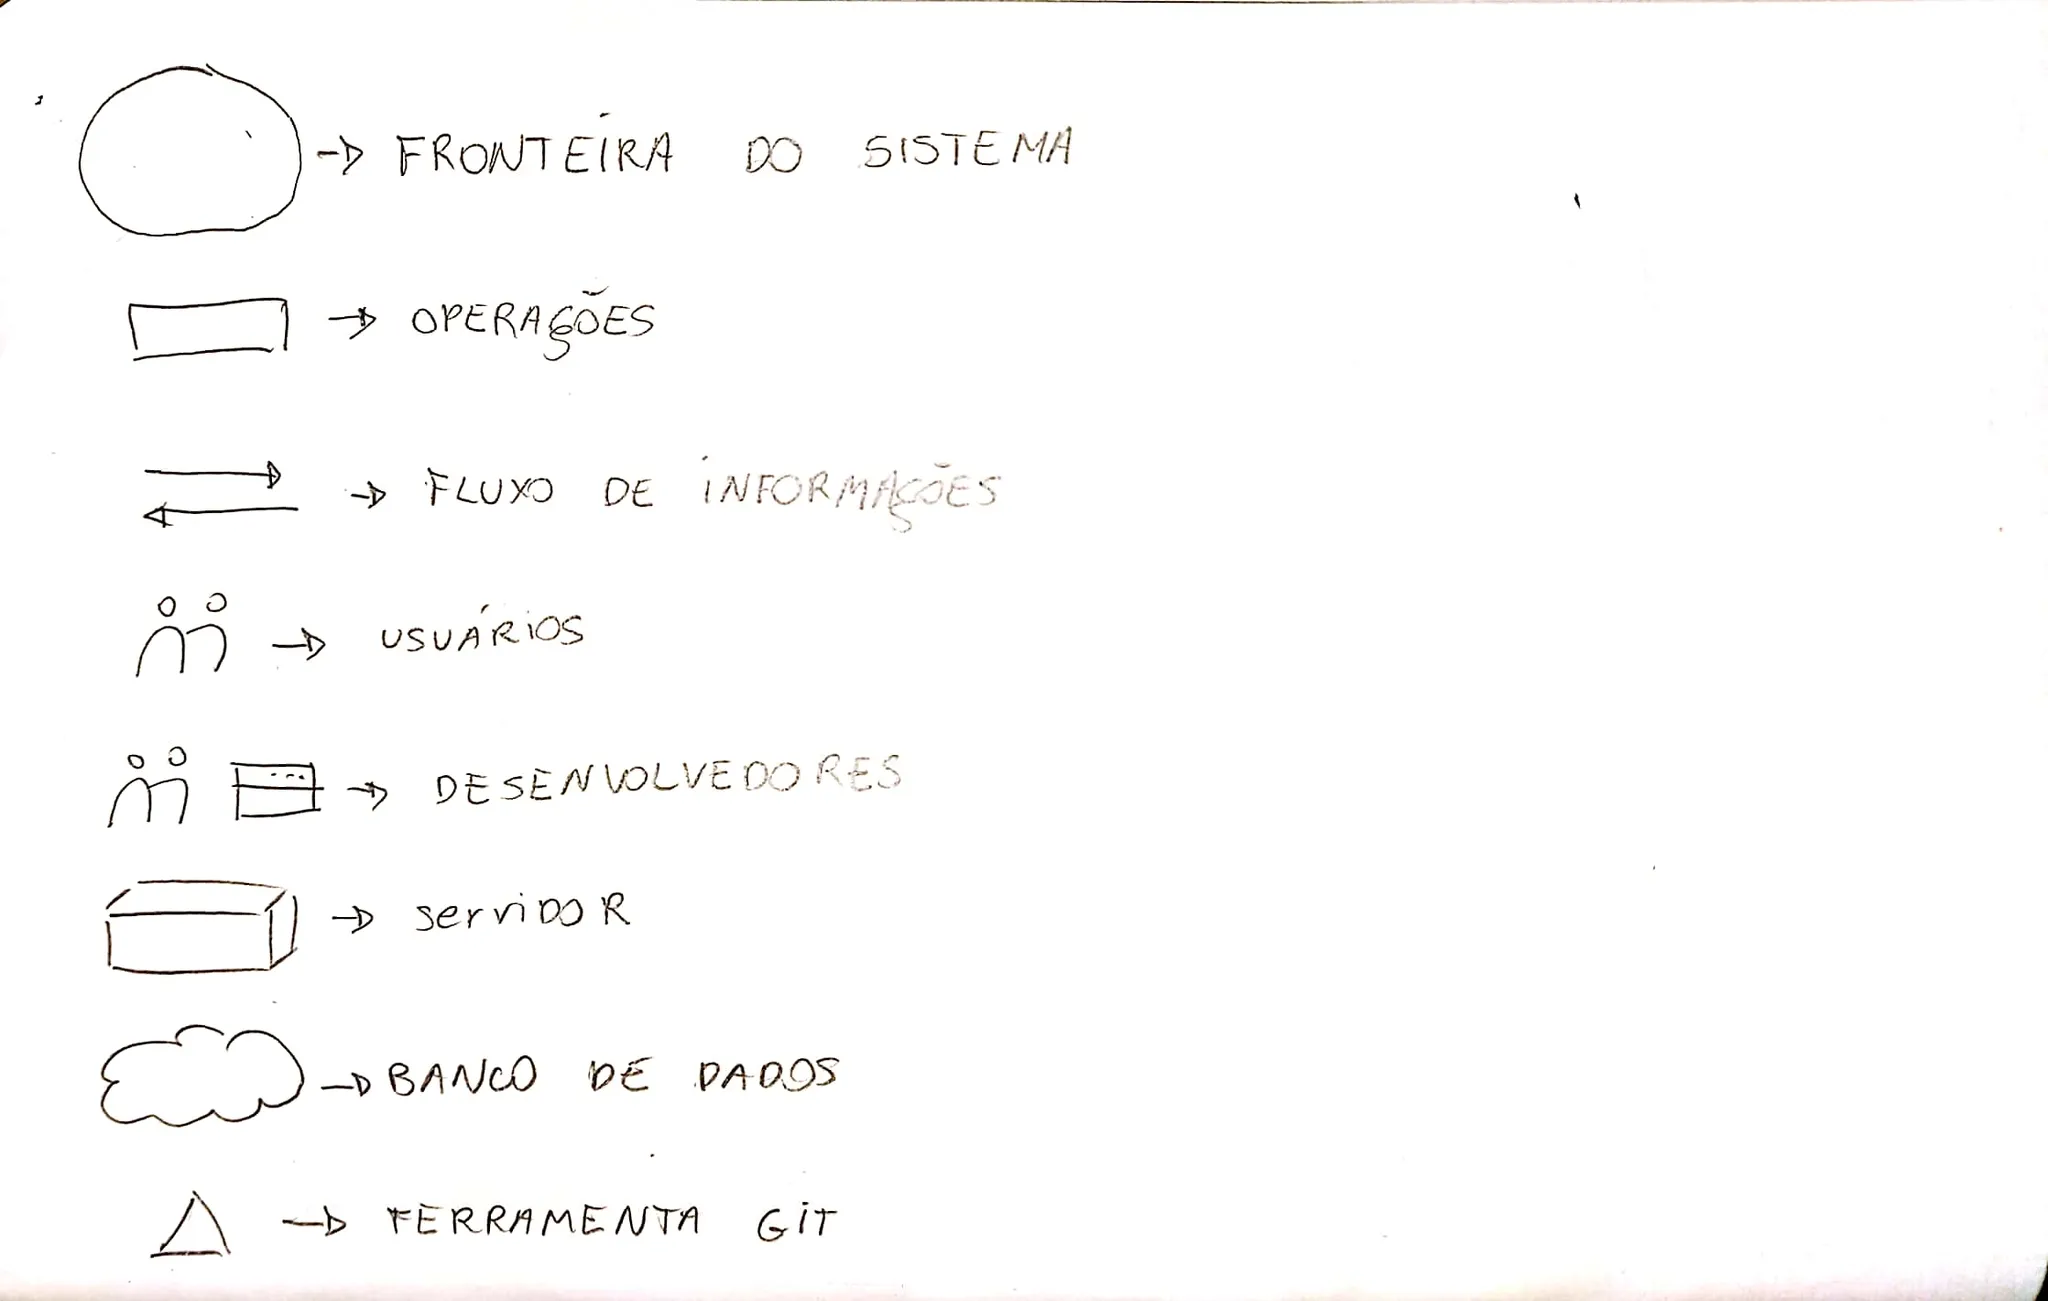 FRONTEIRA DO SISTEMA
OPERAÇÕES
FLUXO DE INFORMAÇÕES
USUÁRIOS
DESENVOLVEDORES
servidoR
BANCO DE DADOS
FERRAMENTA GiT